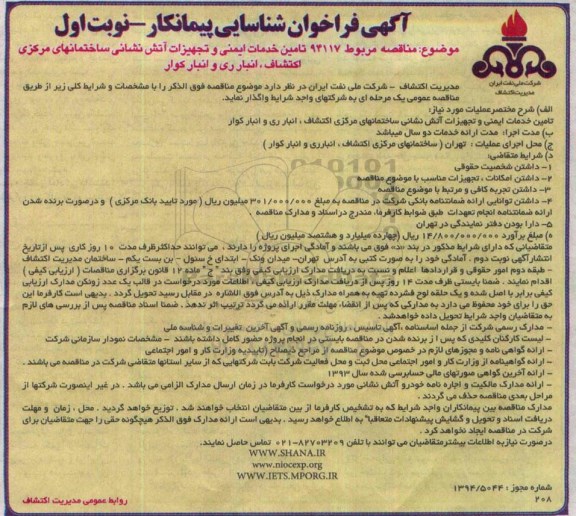 آگهی فراخوان شناسایی پیمانکار – نوبت اول
موضوع: مناقصه مربوط ۹۴۱۱۷ تامین خدمات ایمنی و تجهیزات آتش نشانی ساختمانهای مرکزی
اکتشاف ، انبار ری و انبار کوار
شرکت ملی نفت ایران
مدیریت اکتشاف
مدیریت اکتشاف - شرکت ملی نفت ایران در نظر دارد موضوع مناقصه فوق الذکر را با مشخصات و شرایط کلی زیر از طریق
مناقصه عمومی یک مرحله ای به شرکتهای واجد شرایط واگذار نماید.
الف) شرح مختصر عملیات مورد نیاز:
تامین خدمات ایمنی و تجهیزات آتش نشانی ساختمانهای مرکزی اکتشاف ، انبار ری و انبار کوار
ب) مدت اجرا: مدت ارائه خدمات دو سال میباشد
ج) محل اجرای عملیات : تهران ( ساختمانهای مرکزی اکتشاف ، انبارری و انبار کوار )
د) شرایط متقاضی:
۱- داشتن شخصیت حقوقی
۲- داشتن امکانات ، تجهیزات مناسب با موضوع مناقصه
۳- داشتن تجربه کافی و مرتبط با موضوع مناقصه
۴- داشتن توانایی ارائه ضمانتنامه بانکی شرکت در مناقصه به مبلغ ۳۰۱/۰۰۰/۰۰۰ میلیون ریال ( مورد تایید بانک مرکزی ) و درصورت برنده شدن
ارائه ضمانتنامه انجام تعهدات طبق ضوابط کارفرما، مندرج در اسناد و مدارک مناقصه
۵- دارا بودن دفتر نمایندگی در تهران
ه) مبلغ برآورد ۱۴/۸۰۰/۰۰۰/۰۰۰ ریال (چهارده میلیارد و هشتصد میلیون ریال )
متقاضیانی که دارای شرایط مذکور در بند «د» فوق می باشند و آمادگی اجرای پروژه را دارند ، می توانند حداکثر ظرف مدت ۱۰ روز کاری پس از تاریخ
انتشار آگهی نوبت دوم ، آمادگی خود را به صورت کتبی به آدرس تهران- میدان ونک - ابتداي خ سئول - بن بست یکم - ساختمان مدیریت اکتشاف
- طبقه دوم امور حقوقی و قراردادها اعلام و نسبت به دریافت مدارک ارزیابی کیفی وفق بند "ج" ماده ۱۲ قانون برگزاری مناقصات ( ارزیابی کیفی )
اقدام نمایند . ضمنا بایستی ظرف مدت ۱۴ روز پس از دریافت مدارک ارزیابی کیفی ، اطلاعات مورد درخواست در قالب یک عدد زونکن مدارک ارزیابی
کیفی برابر با اصل شده و یک حلقه لوح فشرده تهیه به همراه مدارک ذیل به آدرس فوق الاشاره در مقابل رسید تحویل گردد . بدیهی است کارفرما این
حق را برای خود محفوظ می دارد به مدارکی که پس از انقضاء مهلت مقرر ارائه می گردد ترتیب اثر ندهد . ضمنا اسناد مناقصه پس از بررسی های لازم
به متقاضیان واجد شرایط تحویل داده خواهد شد .
- مدارک رسمی شرکت از جمله اساسنامه ،آگهی تاسیس ، روزنامه رسمی و آگهی آخرین تغییرات و شناسه ملی
- لیست کارکنان کلیدی که پس از برنده شدن در مناقصه بایستی در انجام پروژه حضور کامل داشته باشند - مشخصات نمودار سازمانی شرکت
- ارائه گواهی نامه و مجوزهای لازم در خصوص موضوع مناقصه از مراجع ذیصلاح (تاییدیه وزارت کار و امور اجتماعی
- ارائه گواهینامه از وزارت کار و امور اجتماعی محل ثبت و محل فعالیت شرکت بابت شرکتهایی که از سایر استانها متقاضی شرکت در مناقصه می باشند .
- ارائه آخرین گواهی صورتهای مالی حسابرسی شده سال ۱۳۹۳
- ارائه مدارک مالکیت و اجاره نامه خودرو آتش نشانی مورد درخواست کارفرما در زمان ارسال مدارک الزامی می باشد . در غیر اینصورت شرکتها از
مراحل بعدی مناقصه حذف می گردند .
مدارک مناقصه بین پیمانکاران واجد شرایط که به تشخیص کارفرما از بین متقاضیان انتخاب خواهند شد ، توزیع خواهد گردید . محل ، زمان و مهلت
دریافت اسناد و تحویل و گشایش پیشنهادات متعاقبا" به اطلاع خواهد رسید . بدیهی است ارائه مدارک فوق الذکر هیچگونه حقی را جهت متقاضیان برای
شرکت در مناقصه ایجاد نخواهد کرد .
درصورت نیاز به اطلاعات بیشتر متقاضیان می توانند با تلفن ۸۲۷۰۳۲۰۹-۰۲۱ تماس حاصل نمایند.
WWW.SHANA.IR
www.niocexp.org
WWW.IETS.MPORG.IR
شماره مجوز : ۱۳۹۴/۵۰۴۴
۲۰۸
روابط عمومی مدیریت اکتشاف